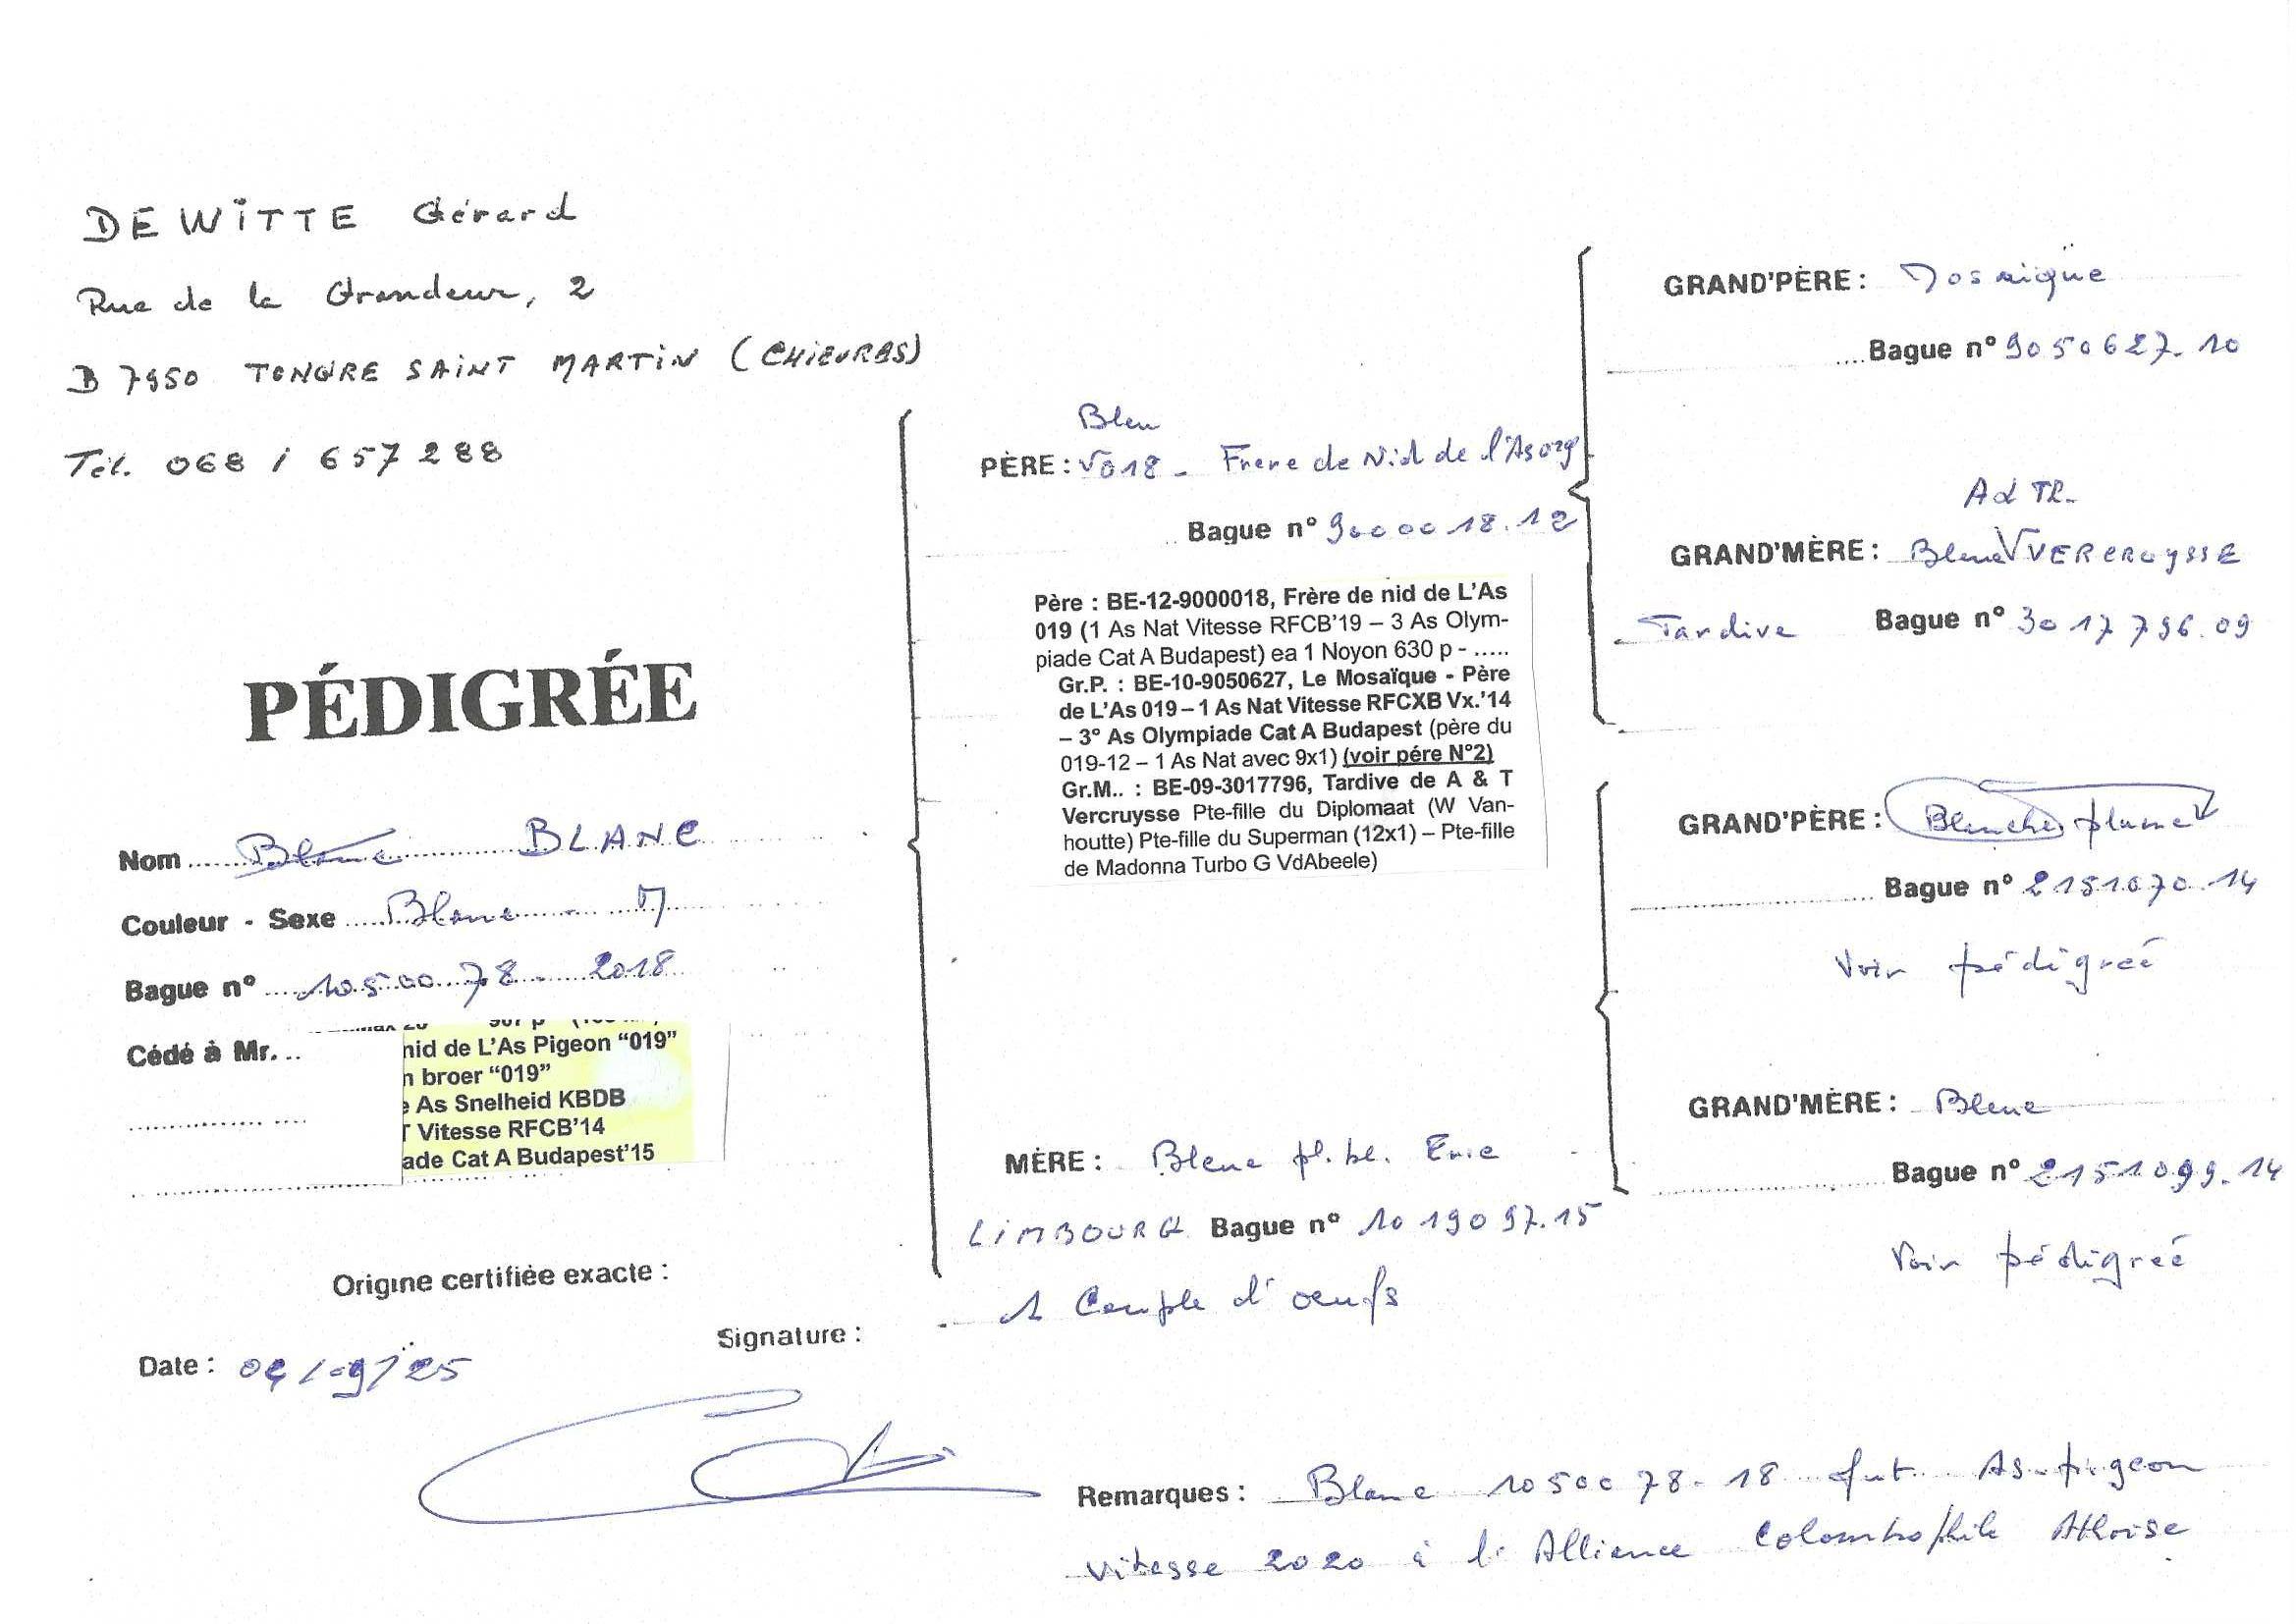 DEWITTE Gérard
Rue de la Grandeur, 2
B 7950 TONGRE SAINT MARTIN (CHIEVRES)
Tél. 068 / 657288
PÉDIGRÉE
Nom Blanc BLANC
Couleur - Sexe Blanc - M
Bague n° 1050078 - 2018
Cédé à Mr.
nid de L'As Pigeon "019"
n broer "019"
e As Snelheid KBDB
T Vitesse RFCB'14
ade Cat A Budapest'15
Origine certifiée exacte :
Signature :
Date : 04/09/25
Bleu
PÈRE : V018 - Frere de Nid de l'As 019
Bague n° 9000018.12
Père : BE-12-9000018, Frère de nid de L'As
019 (1 As Nat Vitesse RFCB'19 – 3 As Olym-
piade Cat A Budapest) ea 1 Noyon 630 p - .....
Gr.P. : BE-10-9050627, Le Mosaïque - Père
de L'As 019 – 1 As Nat Vitesse RFCXB Vx.'14
– 3° As Olympiade Cat A Budapest (père du
019-12 – 1 As Nat avec 9x1) (voir pére N°2)
Gr.M.. : BE-09-3017796, Tardive de A & T
Vercruysse Pte-fille du Diplomaat (W Van-
houtte) Pte-fille du Superman (12x1) – Pte-fille
de Madonna Turbo G VdAbeele)
MÈRE : Bleue pl. bl. Eric
LIMBOURG Bague n° 1019097.15
1 Couple d'oeufs
GRAND'PÈRE : Mosaïque
Bague n° 9050627.10
A & TR.
GRAND'MÈRE : Bleue VERCRUYSSE
Tardive Bague n° 3017796.09
GRAND'PÈRE : Blanches plumes
Bague n° 2151070.14
Voir pédigreé
GRAND'MÈRE : Bleue
Bague n° 2151099.14
Voir pédigreé
Remarques : Blanc 1050078-18 fut As-pigeon
Vitesse 2020 à l'Alliance Colombophile Athoise